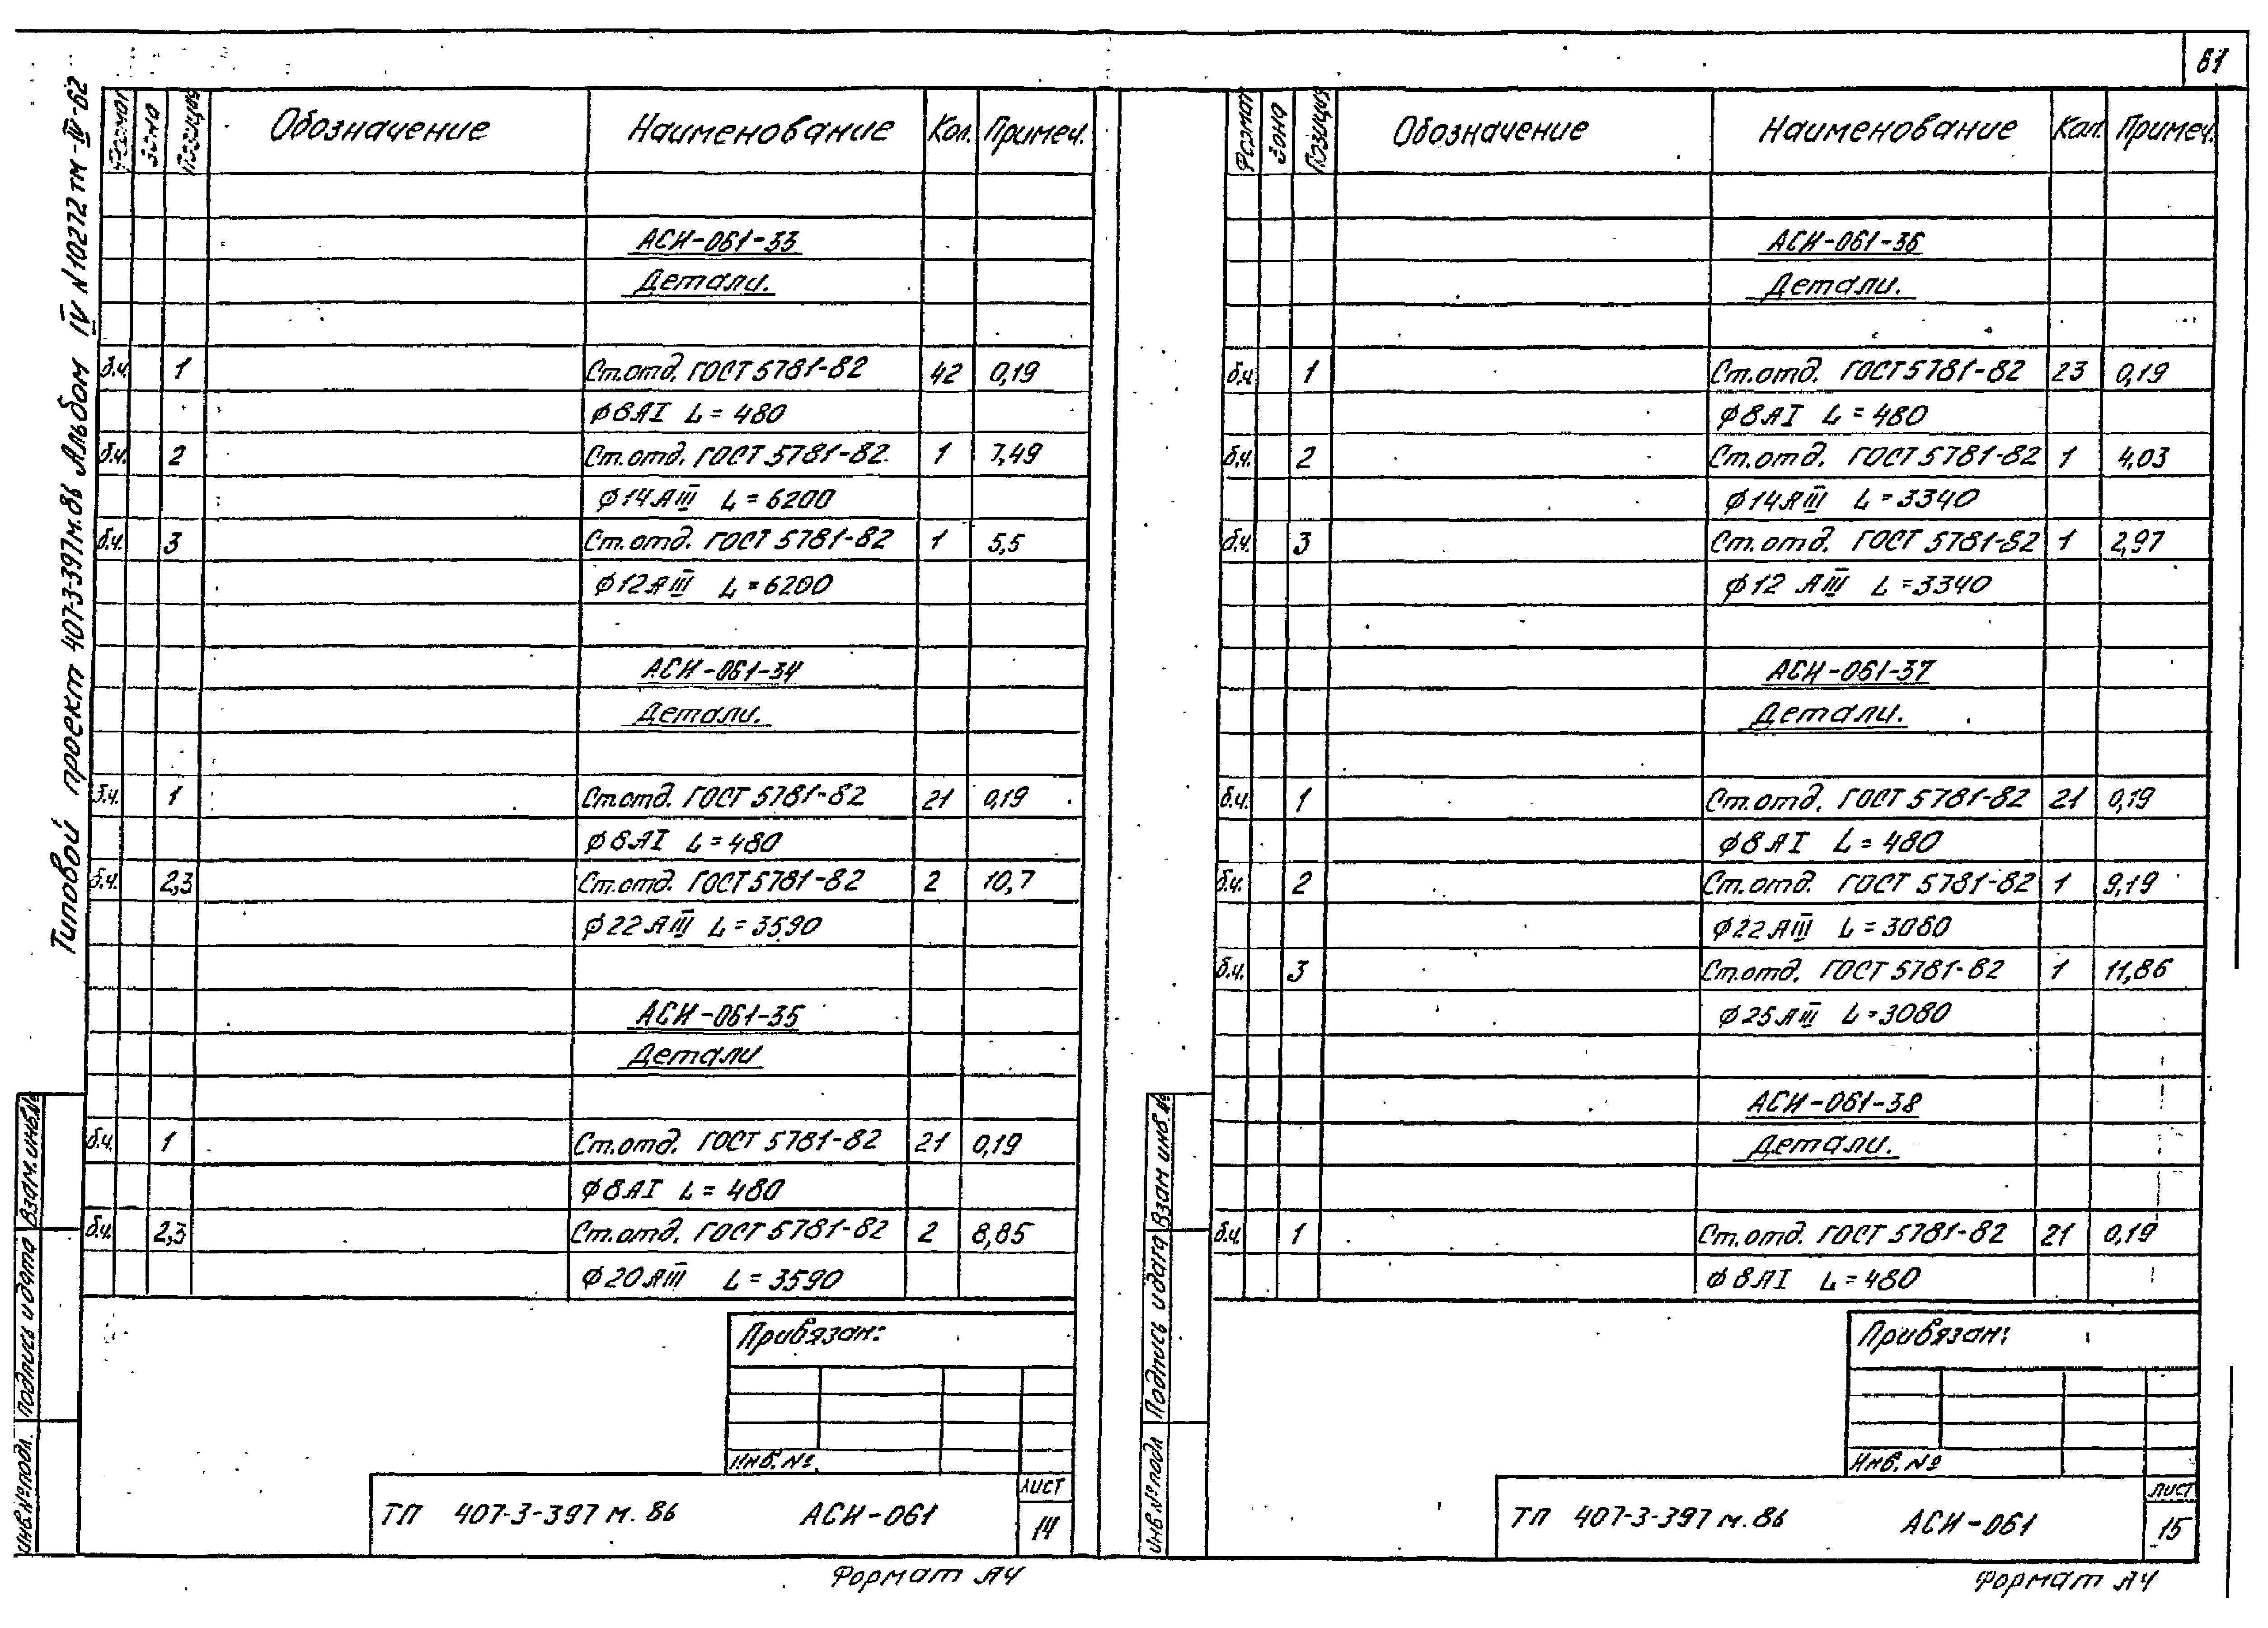 61
Типовой проект 407-3-397м.86 Альбом IV N10272тм-IV-62
Формат Зона Позиция Обозначение Наименование Кол. Примеч.
АСИ-061-33
Детали.
б.ч. 1 Ст.отд. ГОСТ 5781-82 42 0,19
φ8АI L=480
б.ч. 2 Ст.отд. ГОСТ 5781-82 1 7,49
φ14АIII L=6200
б.ч. 3 Ст.отд. ГОСТ 5781-82 1 5,5
φ12АIII L=6200
АСИ-061-34
Детали.
б.ч. 1 Ст.отд. ГОСТ 5781-82 21 0,19
φ8АI L=480
б.ч. 2,3 Ст.отд. ГОСТ 5781-82 2 10,7
φ22АIII L=3590
АСИ-061-35
Детали
б.ч. 1 Ст.отд. ГОСТ 5781-82 21 0,19
φ8АI L=480
б.ч. 2,3 Ст.отд. ГОСТ 5781-82 2 8,85
φ20АIII L=3590
Привязан:
Инв.№
ТП 407-3-397м.86 АСИ-061
Лист
14
Формат А4
Взам.инв.№
Подпись и дата
Инв.№подл.
Формат Зона Позиция Обозначение Наименование Кол. Примеч.
АСИ-061-36
Детали.
б.ч. 1 Ст.отд. ГОСТ 5781-82 23 0,19
φ8АI L=480
б.ч. 2 Ст.отд. ГОСТ 5781-82 1 4,03
φ14АIII L=3340
б.ч. 3 Ст.отд. ГОСТ 5781-82 1 2,97
φ12АIII L=3340
АСИ-061-37
Детали.
б.ч. 1 Ст.отд. ГОСТ 5781-82 21 0,19
φ8АI L=480
б.ч. 2 Ст.отд. ГОСТ 5781-82 1 9,19
φ22АIII L=3080
б.ч. 3 Ст.отд. ГОСТ 5781-82 1 11,86
φ25АIII L=3080
АСИ-061-38
Детали.
б.ч. 1 Ст.отд. ГОСТ 5781-82 21 0,19
φ8АI L=480
Привязан:
Инв.№
ТП 407-3-397м.86 АСИ-061
Лист
15
Формат А4
Взам инв.№
Подпись и дата
Инв.№подл